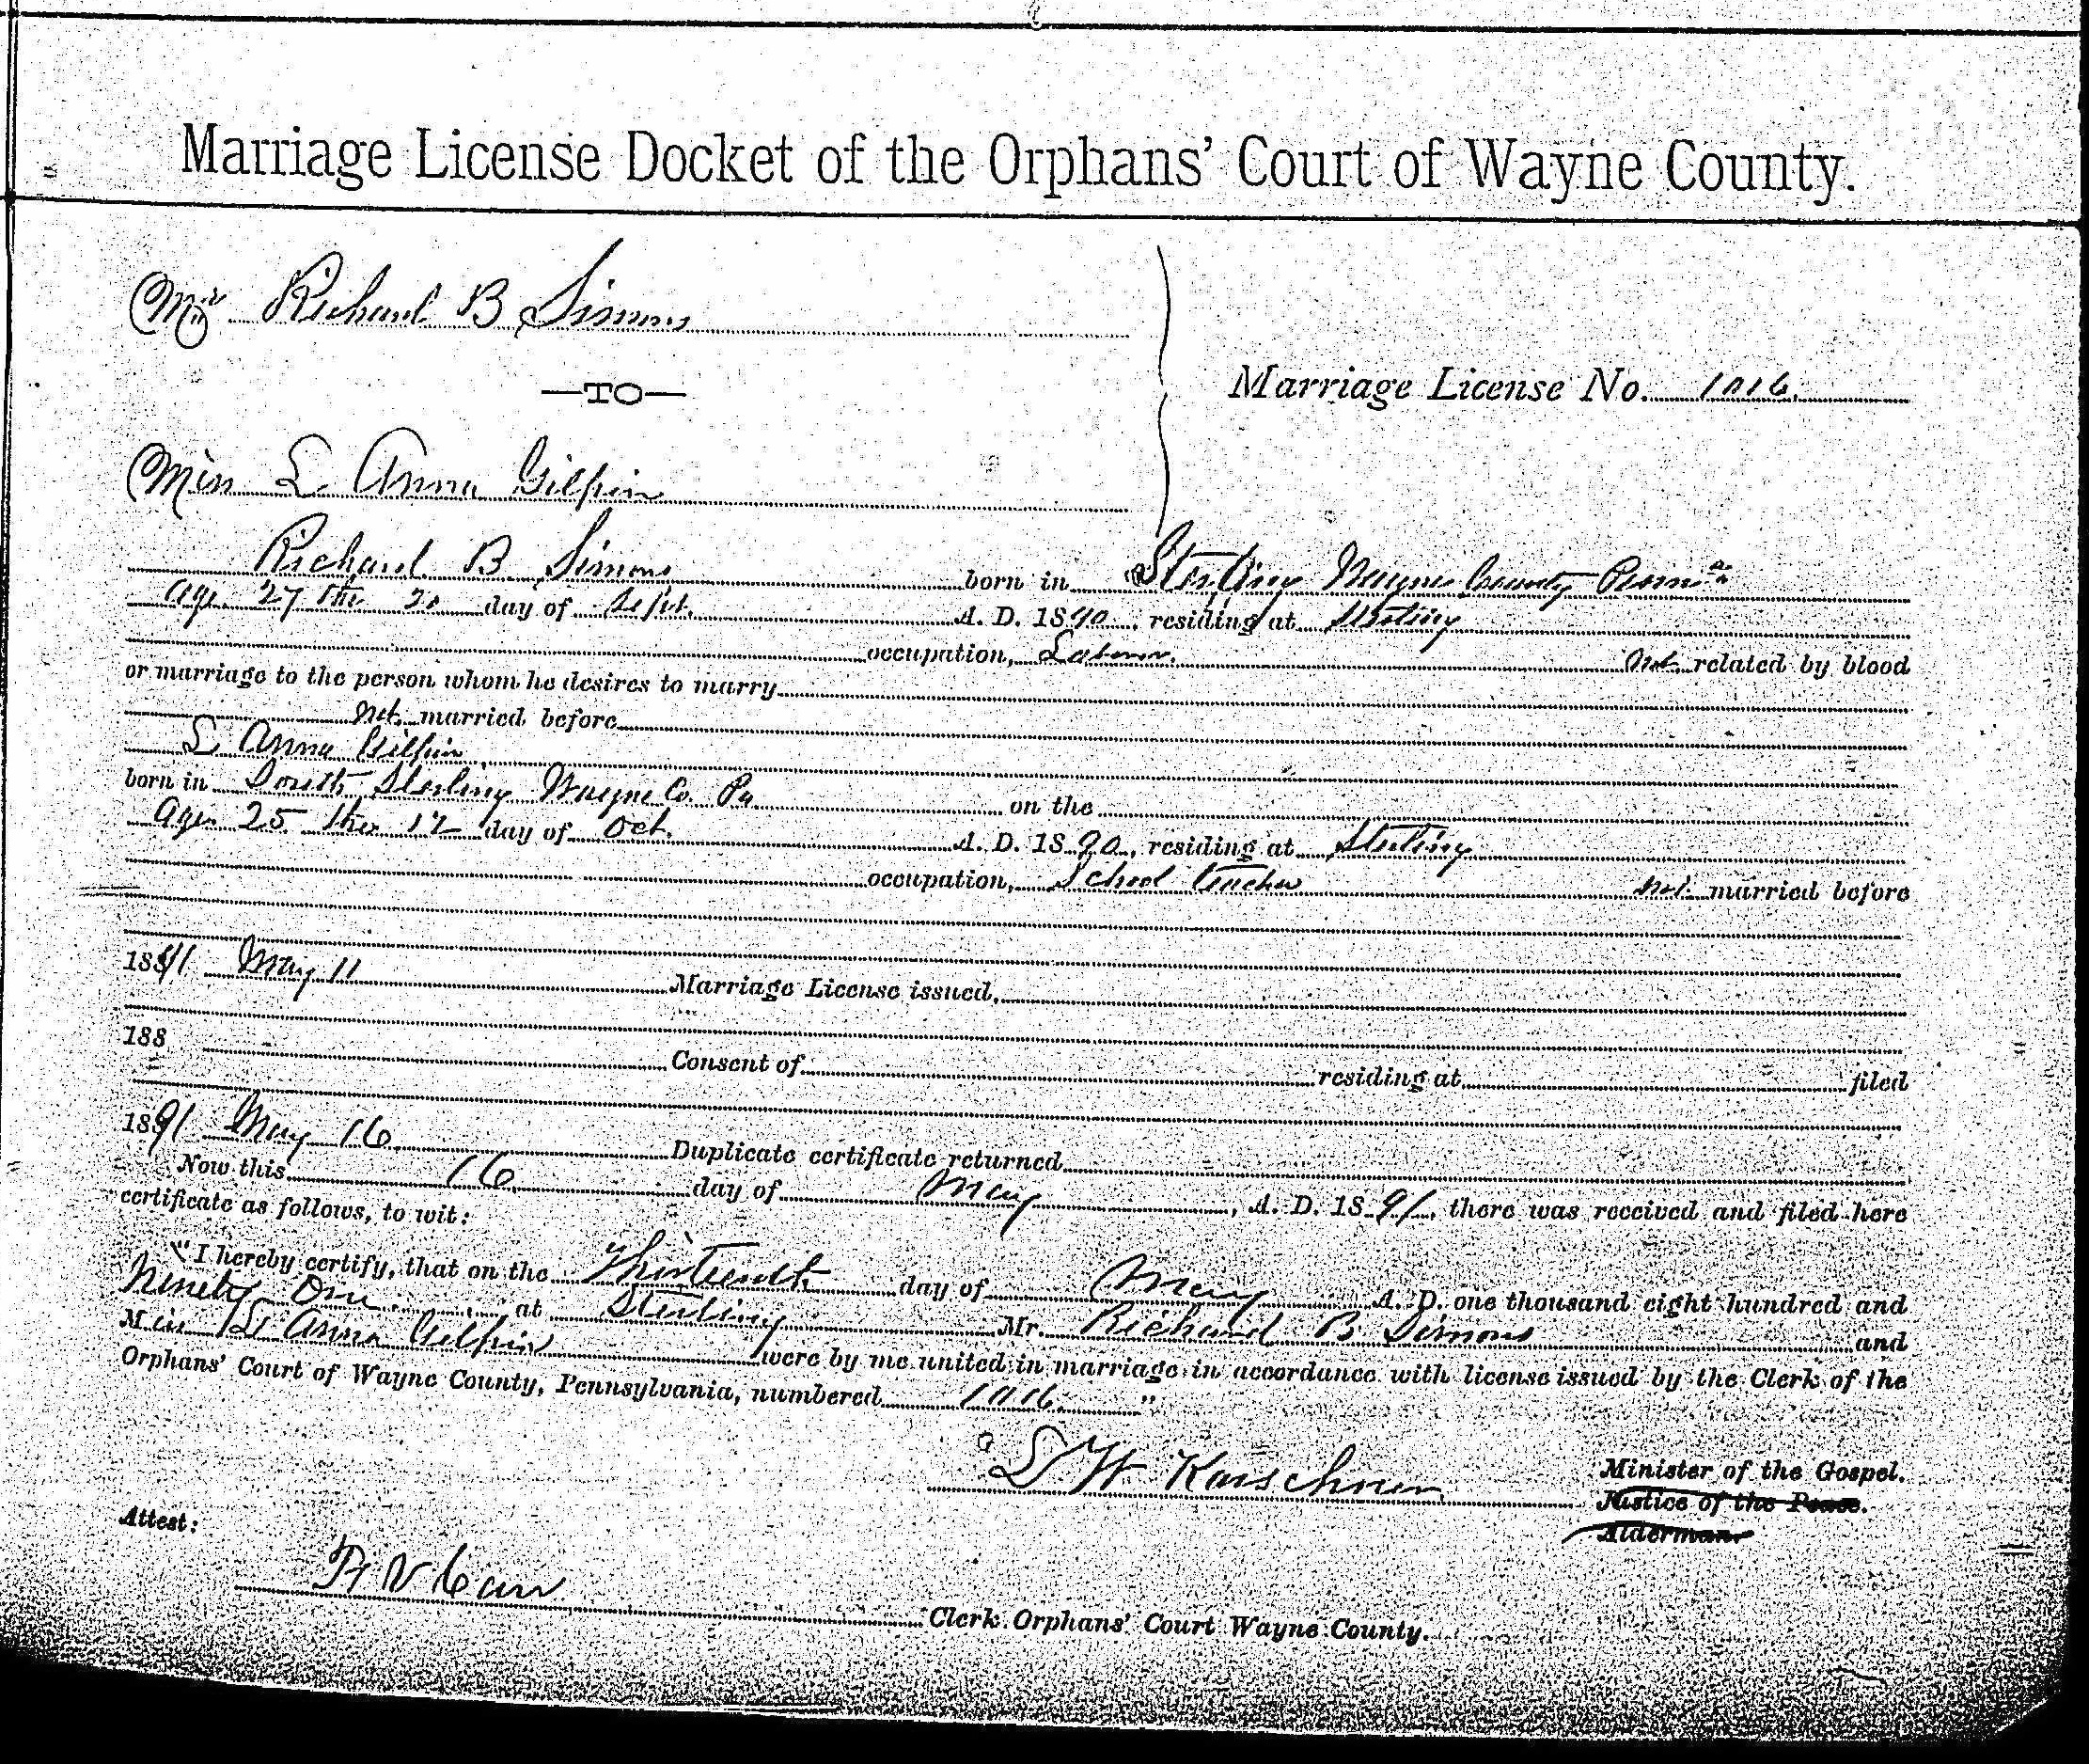 Marriage License Docket of the Orphans' Court of Wayne County.
Mr Richard B Simons
—TO—
Marriage License No. 1016.
Miss L Anna Gilpin
Richard B. Simons born in Sterling Wayne County Penn'a
Age 27 the 20 day of Sept. A. D. 1890, residing at Sterling
occupation, Laborer. Not related by blood
or marriage to the person whom he desires to marry
Not married before
L Anna Gilpin
born in South Sterling Wayne Co. Pa on the
Age 25 the 12 day of Oct. A. D. 1890, residing at Sterling
occupation, School teacher Not married before
1891 May 11 Marriage License issued,
188 Consent of residing at filed
1891 May 16 Duplicate certificate returned
Now this 16 day of May, A. D. 1891, there was received and filed here
certificate as follows, to wit:
"I hereby certify, that on the Thirteenth day of May A. D. one thousand eight hundred and
Ninety One at Sterling Mr. Richard B. Simons and
Miss L Anna Gilpin were by me united in marriage in accordance with license issued by the Clerk of the
Orphans' Court of Wayne County, Pennsylvania, numbered 1016."
Minister of the Gospel.
Justice of the Peace.
Alderman.
Attest:
Clerk Orphans' Court Wayne County.